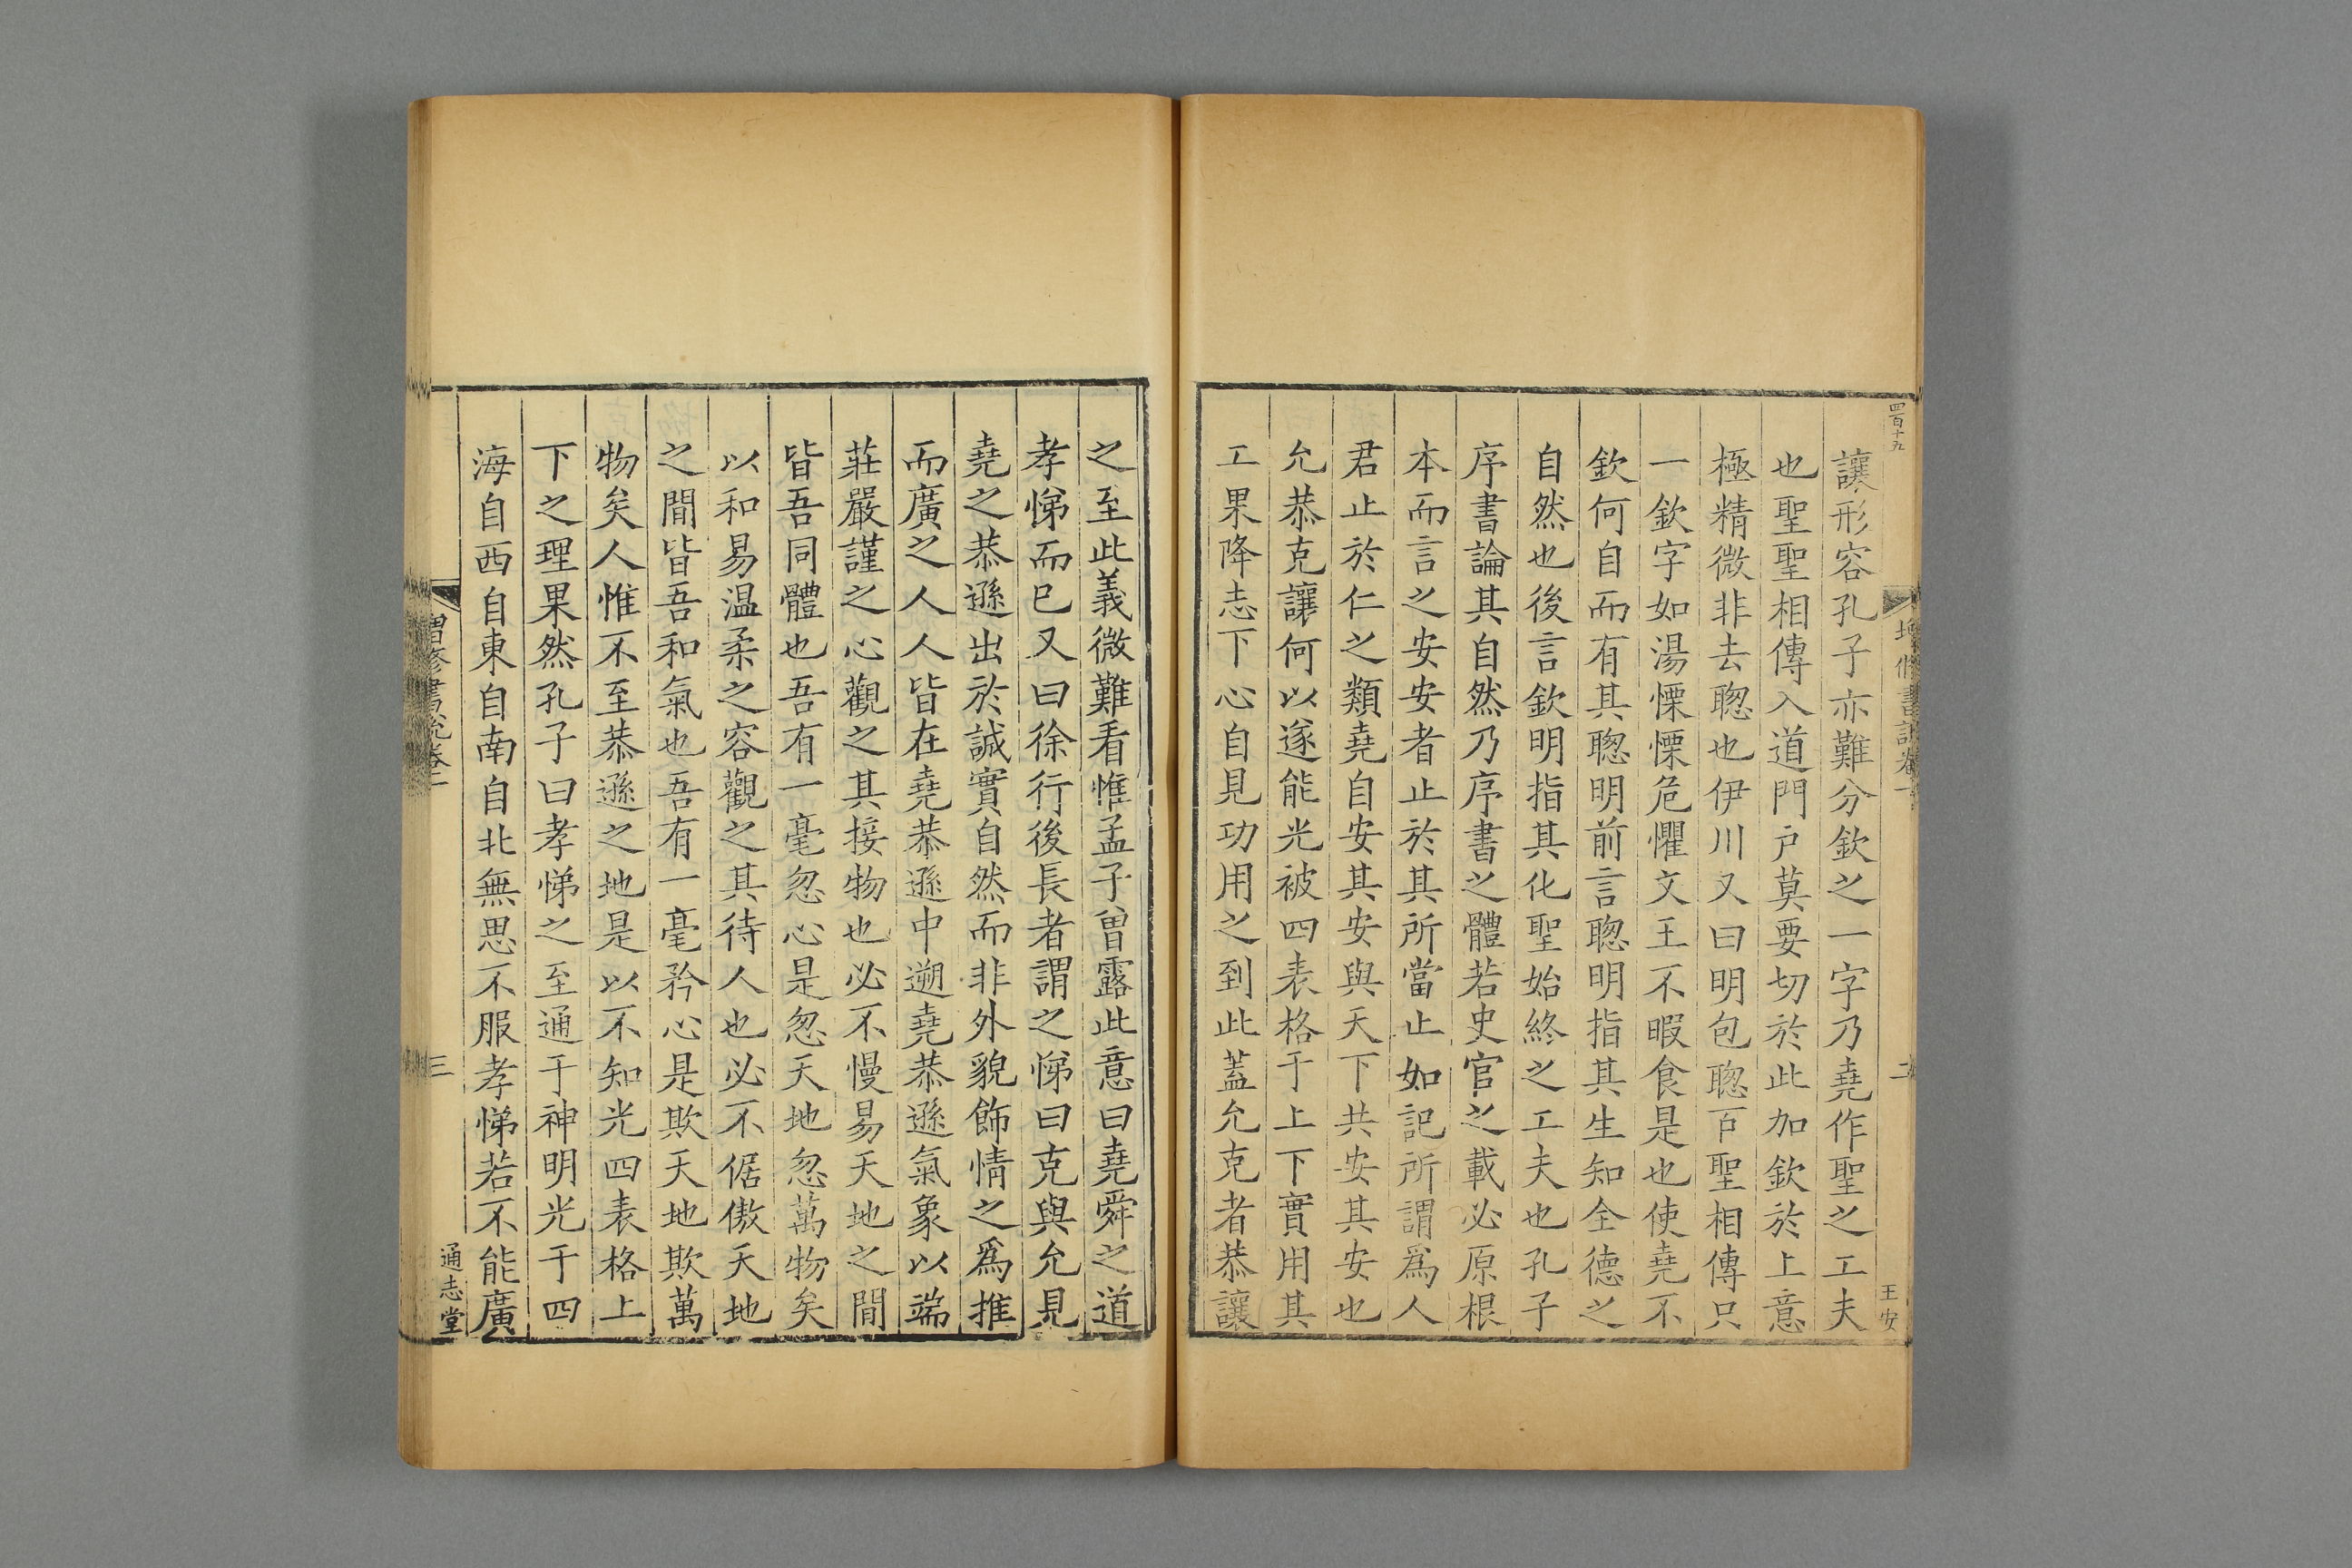 四百十五
增修書說卷一
二
王安
讓形容孔子亦難分欽之一字乃堯作聖之工夫
也聖聖相傳入道門戶莫要切於此加欽於上意
極精微非去聰也伊川又曰明包聰百聖相傳只
一欽字如湯慄慄危懼文王不暇食是也使堯不
欽何自而有其聰明前言聰明指其生知全德之
自然也後言欽明指其化聖始終之工夫也孔子
序書論其自然乃序書之體若史官之載必原根
本而言之安安者止於其所當止如記所謂為人
君止於仁之類堯自安其安與天下共安其安也
允恭克讓何以遂能光被四表格于上下實用其
工果降志下心自見功用之到此蓋允克者恭讓
之至此義微難看惟孟子曾露此意曰堯舜之道
孝悌而已又曰徐行後長者謂之悌曰克與允見
堯之恭遜出於誠實自然而非外貌飾情之爲推
而廣之人人皆在堯恭遜中遡堯恭遜氣象以端
莊嚴謹之心觀之其接物也必不慢易天地之間
皆吾同體也吾有一毫忽心是忽天地忽萬物矣
以和易温柔之容觀之其待人也必不倨傲天地
之間皆吾和氣也吾有一毫矜心是欺天地欺萬
物矣人惟不至恭遜之地是以不知光四表格上
下之理果然孔子曰孝悌之至通于神明光于四
海自西自東自南自北無思不服孝悌若不能廣
增修書說卷一
三
通志堂